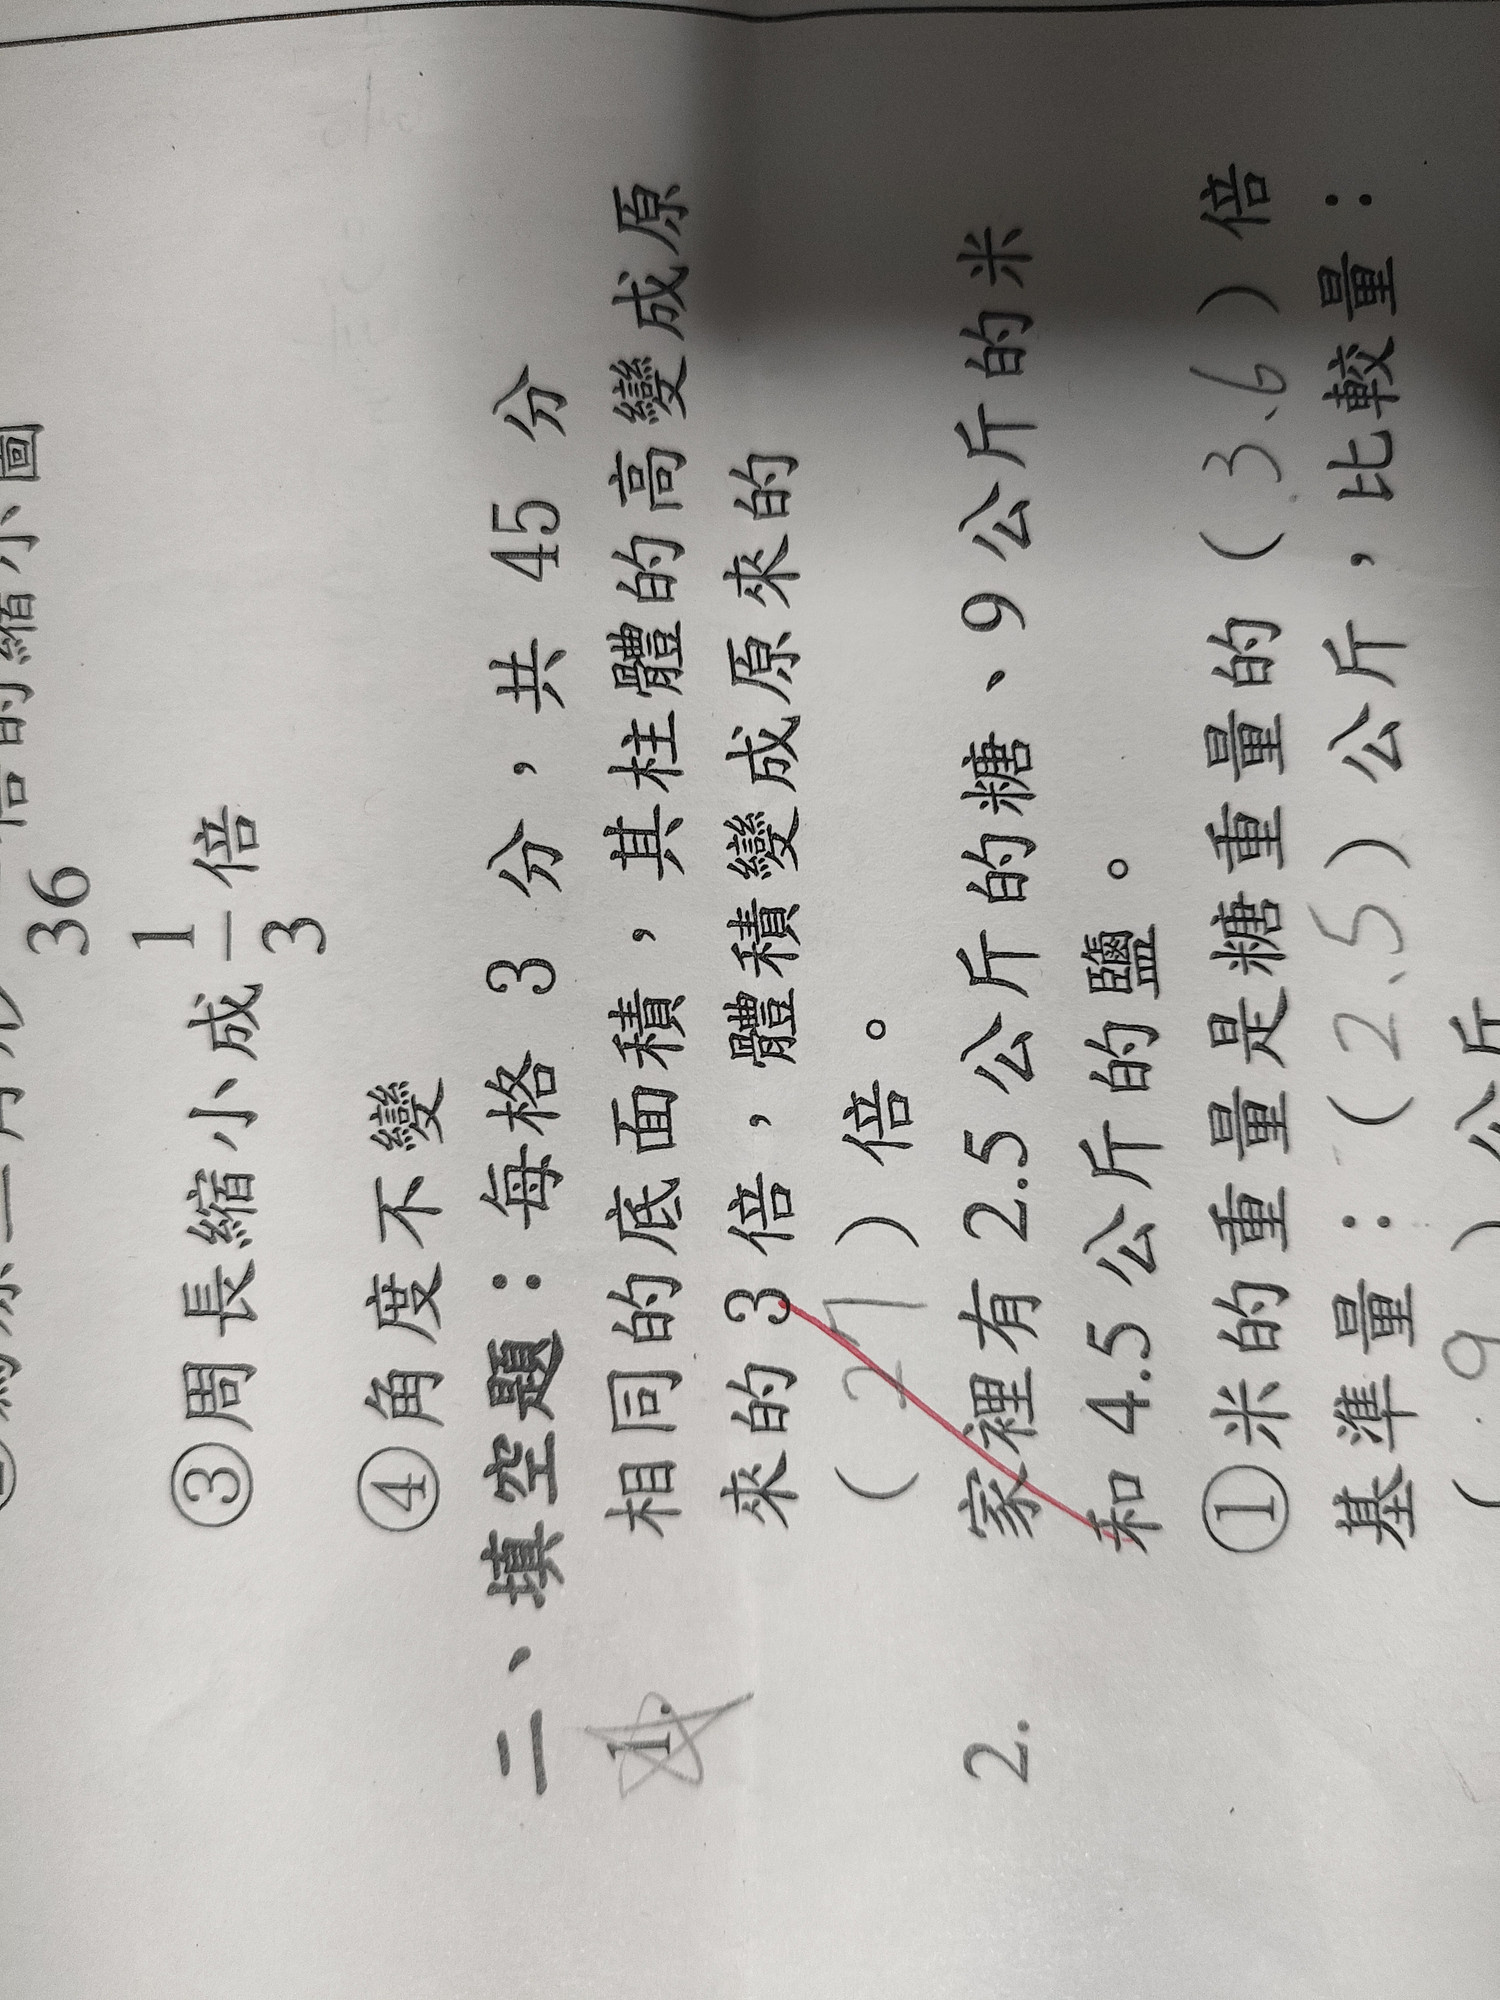 36
③周長縮小成1/3倍
④角度不變
二、填空題：每格 3 分，共 45 分
1. 相同的底面積，其柱體的高變成原
來的 3 倍，體積變成原來的
( 27 ) 倍。
2. 家裡有 2.5 公斤的糖、9 公斤的米
和 4.5 公斤的鹽。
①米的重量是糖重量的 ( 3.6 ) 倍
基準量：( 2.5 ) 公斤，比較量：
( 9 ) 公斤